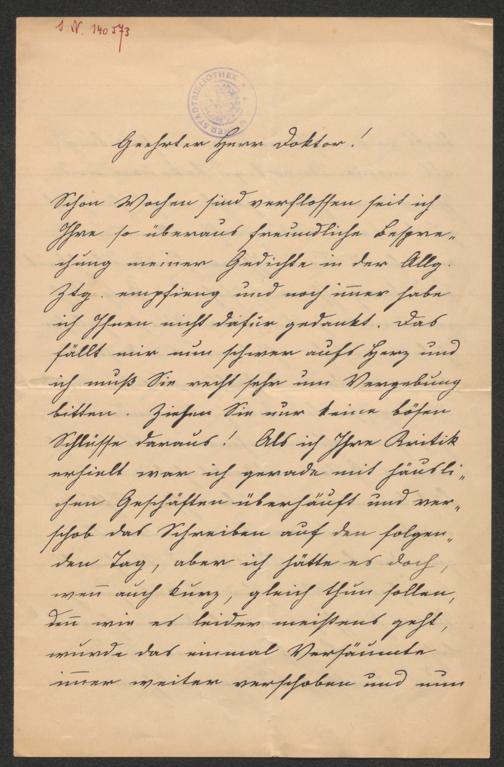 I. N. 140573
WIENER STADTBIBLIOTHEK
Geehrter Herr Doktor!
Schon Wochen sind verflossen seit ich
Ihre so überaus freundliche Bespre-
chung meiner Gedichte in der Allg.
Ztg. empfieng und noch im̅er habe
ich Ihnen nicht dafür gedankt. Das
fällt mir nun schwer aufs Herz und
ich muß Sie recht sehr um Vergebung
bitten. Ziehen Sie nur keine bösen
Schlüsse daraus! Als ich Ihre Kritik
erhielt war ich gerade mit häusli-
chen Geschäften überhäuft und ver-
schob das Schreiben auf den folgen-
den Tag, aber ich hätte es doch,
wen̅ auch kurz, gleich thun sollen,
den̅ wie es leider meistens geht,
wurde das einmal Versäumte
im̅er weiter verschoben und nun